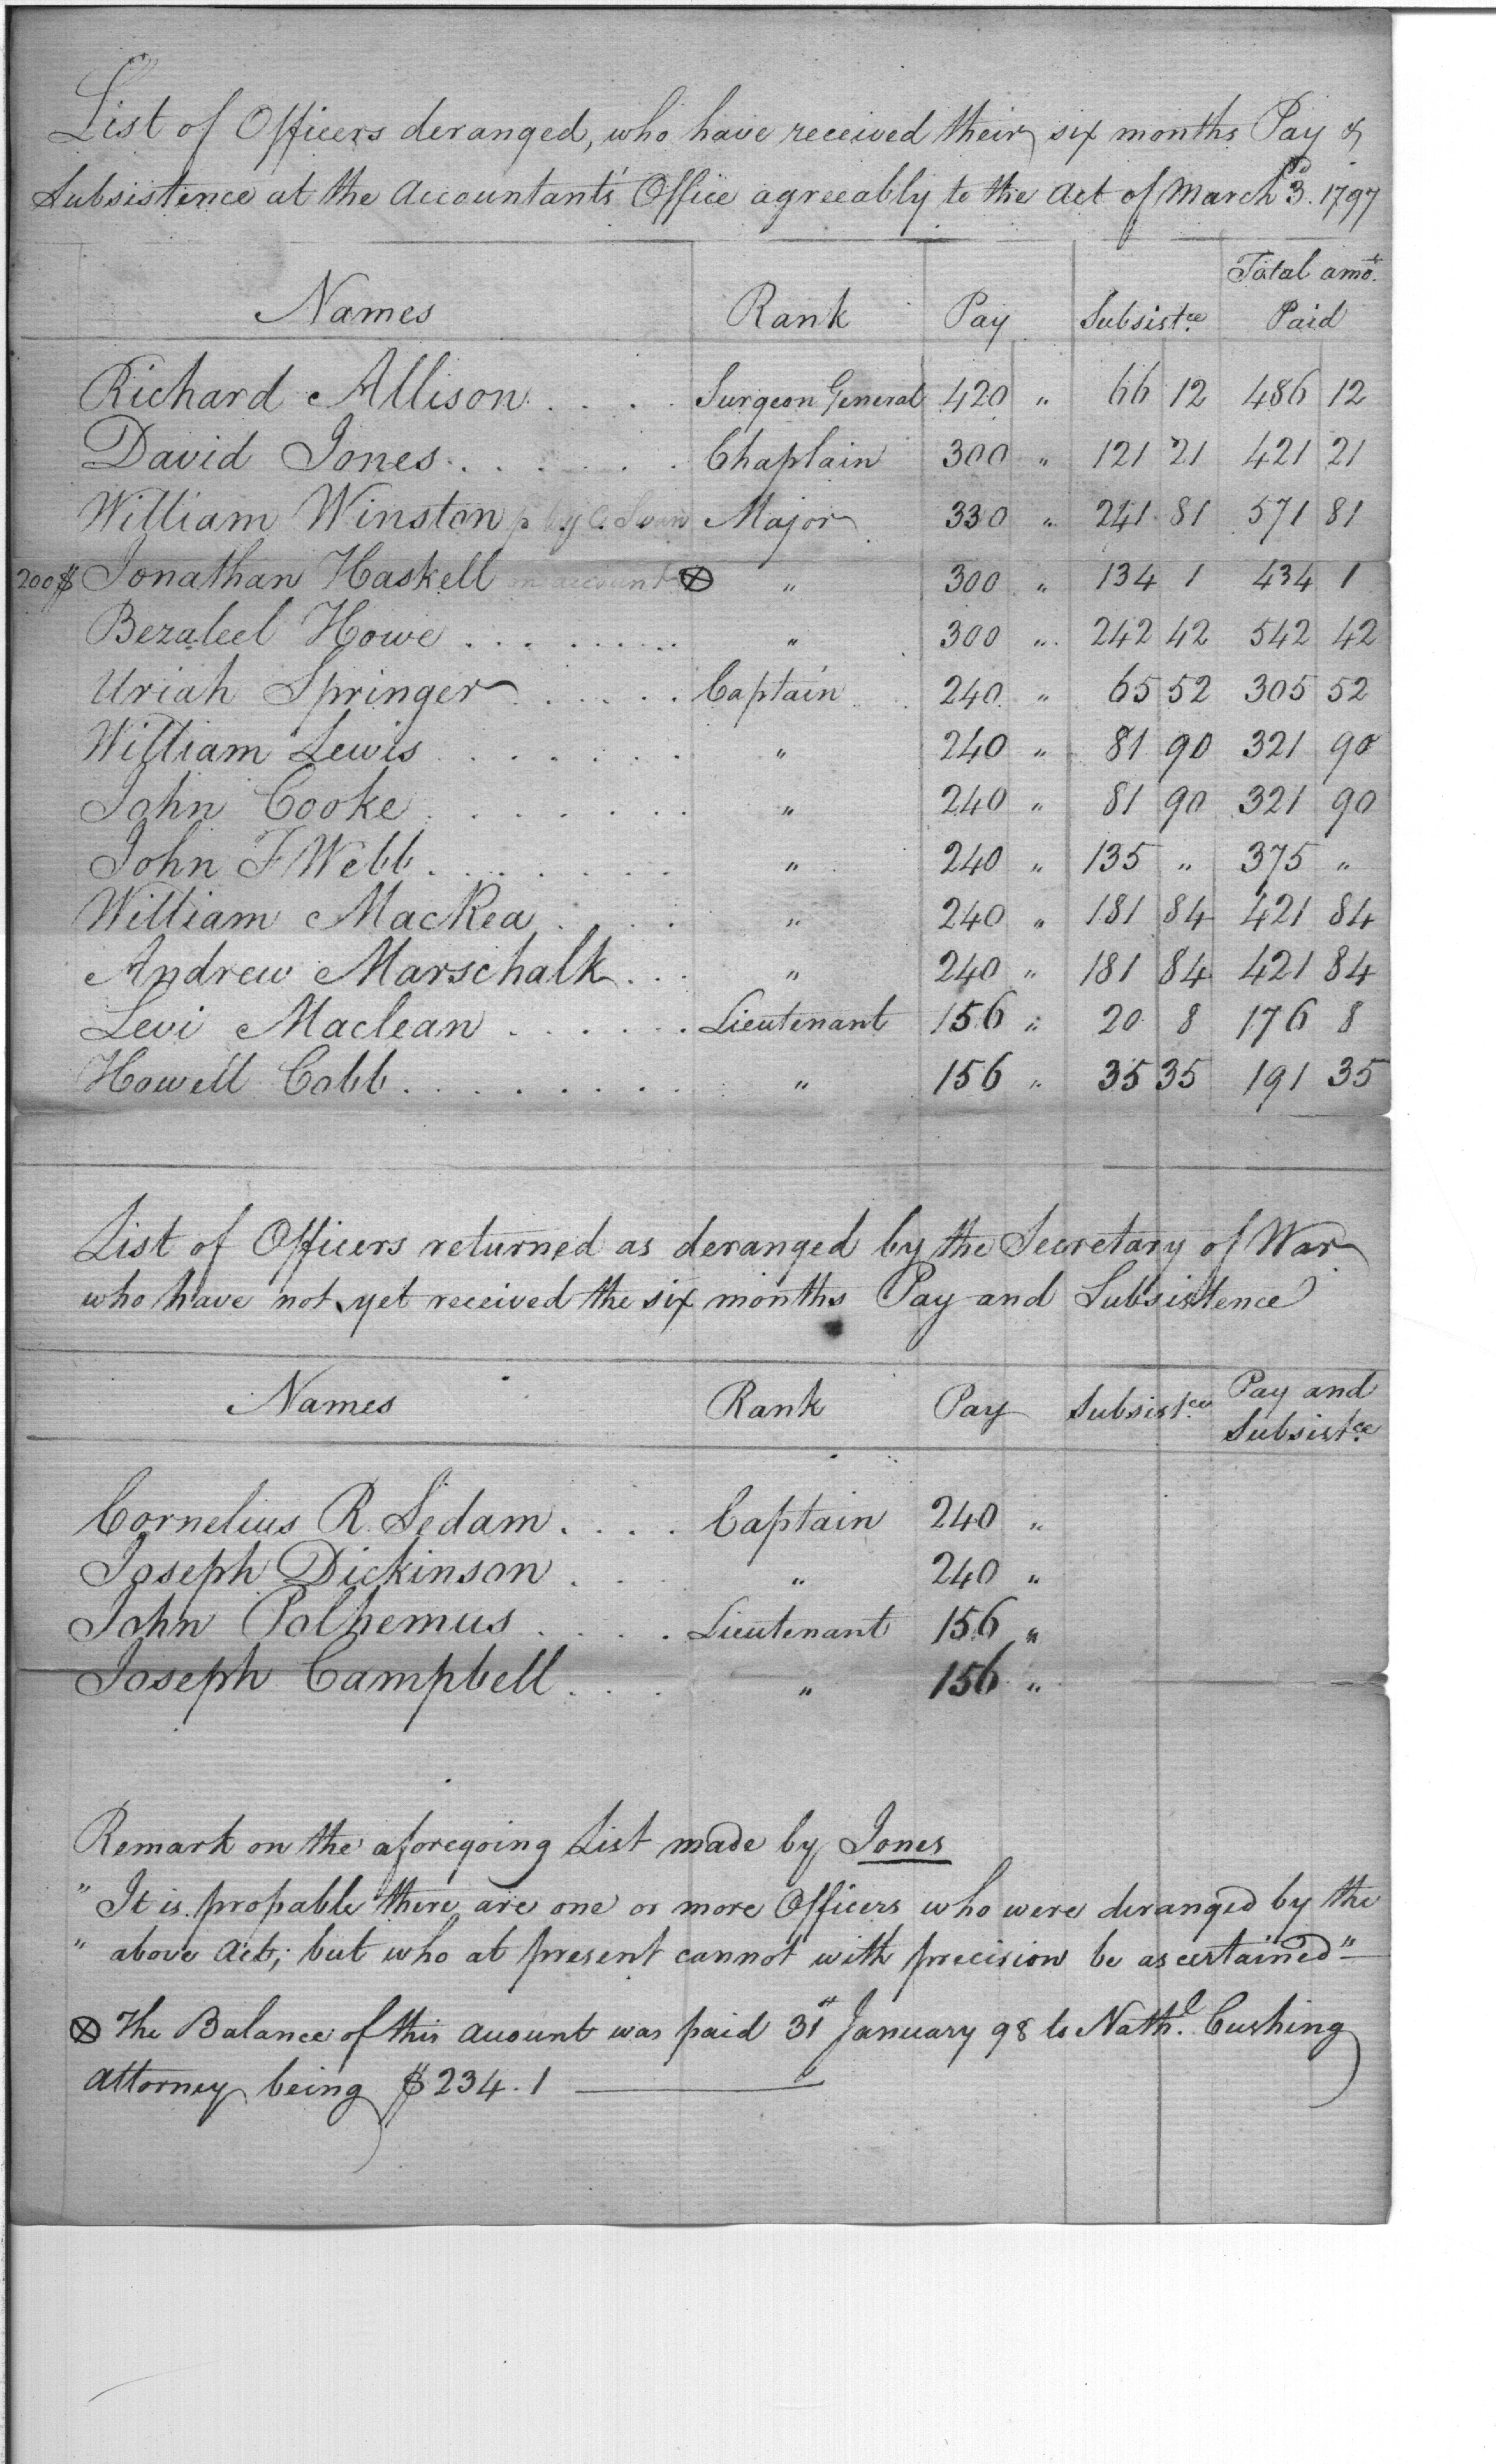 List of Officers deranged, who have received their six months Pay &
Subsistence at the Accountants' Office agreeably to the Act of March 3d. 1797
Names Rank Pay Subsistce. Total amot. Paid
Richard Allison . . . . Surgeon General 420 " 66 12 486 12
David Jones . . . . . . Chaplain 300 " 121 21 421 21
William Winston p by C. Swan Major 330 " 241 81 571 81
200$ Jonathan Haskell on account ⊗ " 300 " 134 1 434 1
Bezaleel Howe . . . . . . . . " 300 " 242 42 542 42
Uriah Springer . . . . . Captain 240 " 65 52 305 52
William Lewis . . . . . . . " 240 " 81 90 321 90
John Cooke . . . . . . . " 240 " 81 90 321 90
John F Webb . . . . . . . " 240 " 135 " 375 "
William MacRea . . . . " 240 " 181 84 421 84
Andrew Marschalk . . . " 240 " 181 84 421 84
Levi Maclean . . . . . . Lieutenant 156 " 20 8 176 8
Howell Cobb . . . . . . . . " 156 " 35 35 191 35
List of Officers returned as deranged by the Secretary of War
who have not yet received the six months Pay and Subsistence
Names Rank Pay Subsistce. Pay and Subsistce.
Cornelius R. Sedam . . . . Captain 240 "
Joseph Dickinson . . . " 240 "
John Polhemus . . . . Lieutenant 156 "
Joseph Campbell . . . " 156 "
Remark on the aforegoing List made by Jones
" It is propable there are one or more Officers who were deranged by the
" above Act; but who at present cannot with precision be ascertained"
⊗ The Balance of this account was paid 31st January 98 to Nathl. Cushing
Attorney being $234.1